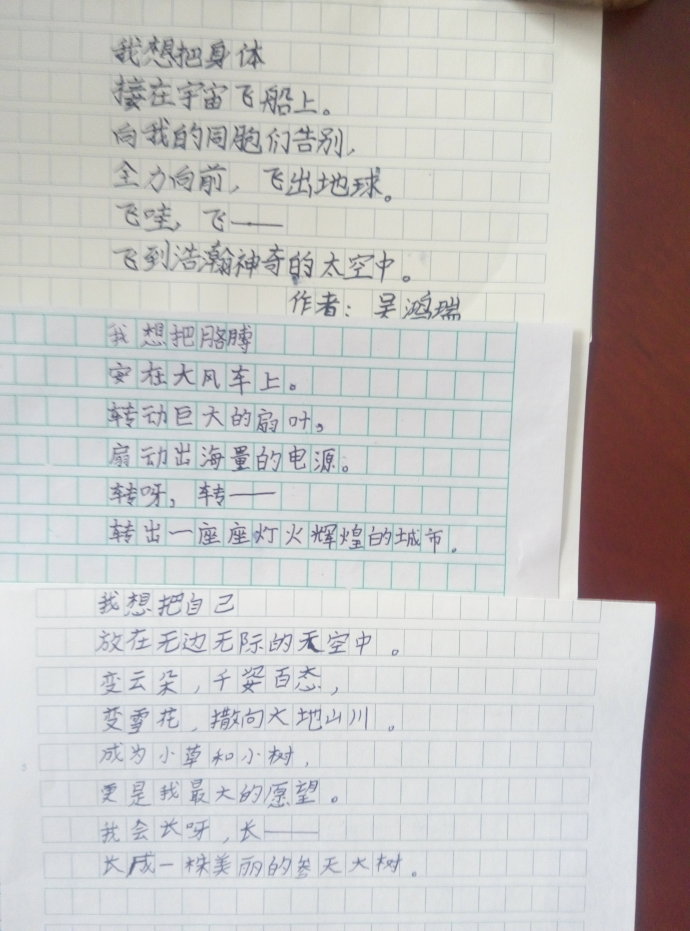 我想把身体
接在宇宙飞船上。
向我的同胞们告别，
全力向前，飞出地球。
飞哇，飞——
飞到浩瀚神奇的太空中。
作者：吴鸿瑞
我想把胳膊
安在大风车上。
转动巨大的扇叶，
扇动出海量的电源。
转呀，转——
转出一座座灯火辉煌的城市。
我想把自己
放在无边无际的天空中。
变云朵，千姿百态，
变雪花，撒向大地山川。
成为小草和小树，
更是我最大的愿望。
我会长呀，长——
长成一株美丽的参天大树。